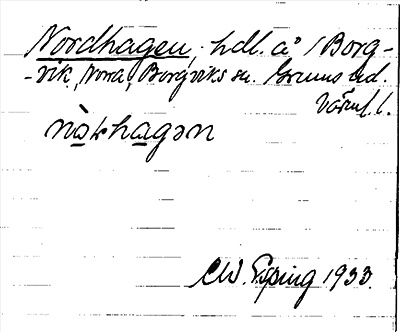 Nordhagen, hdl. å 1/Borg-
-vik, Norra, Borgviks sn. Grums hd.
Värml. l.
nòkhagən
C.W. Esping 1933.